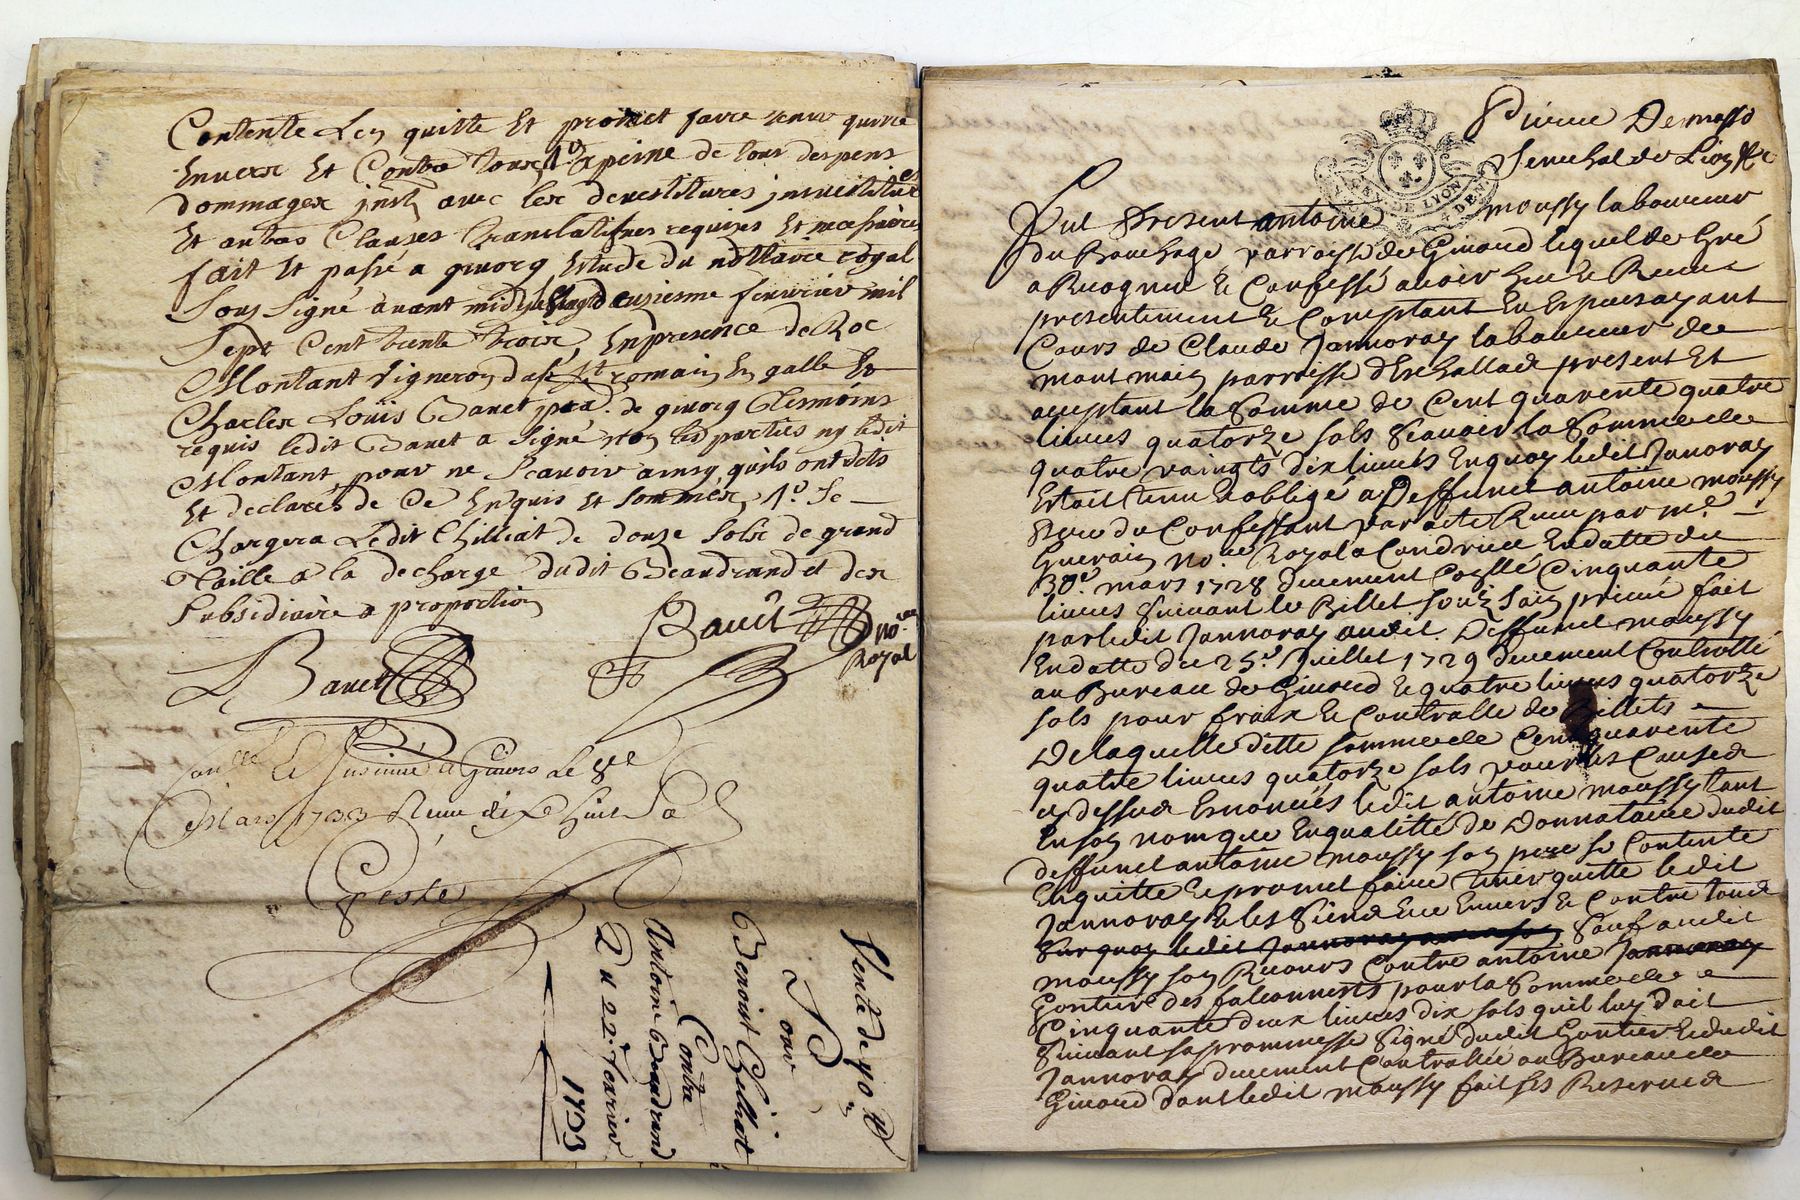 Contente Len quitte Et promet faire tenir quitte
Envers Et Contre tous a peine de tous despens
dommages avec les devestitures investitures
Et autres Clauses translatives requises Et necessaires
fait Et passé a givorg Estude du nottaire royal
Sous Signé avant midy deusiesme fevrier mil
Sept Cent trente trois, En presence de Roc
Montant Vigneron de St romain En galle Et
Charles Louis Banet de givorg tesmoins
requis ledit Banet a Signé non les parties ny ledit
Montant pour ne Scavoir ainsy quils ont dits
Et declarés de Ce Enquis Et Sommés, Se
Chargera Ledit Chilliat de douze Sols de grand
taille a la decharge dudit Beaudrand et des
Subsidiaire a proportion
Banet
Royal
Banet
Insinué a Givors Le 8e
Mars 1733
Vente de 90 ₶
Pour
Benoist Chilliat
Contre
Antoine Beaudrand
Du 22e fevrier
1733
GEN. DE LYON
DEN.
Senechal de Lion
Fut Present antoine moussy laboureur
du Bouchage parroisse de Givord lequel de Gré
a Recognu Et Confessé avoir Heu Et Receu
presentement Et Comptant En Especes ayant
Cours de Claude Jannoray laboureur de
mont parroisse dEschallas present Et
acceptant la Somme de Cent quarente quatre
livres quatorze sols Scavoir la Somme de
quatre vaingts dix livres Enquoy ledit Jannoray
Estoit tenu Et obligé a Deffunct antoine moussy
pere du Confessant par acte Receu par me
Guerain Nore Royal a Condrieu Endatte du
30e mars 1728 deuement Cinquante
livres suivant le Billet souz Sain privé fait
par ledit Jannoray audit Deffunct moussy
Endatte du 25e Juillet 1729 deuement Controllé
au Bureau de Givord Et quatre livres quatorze
sols pour fraix Et Controlle de Billets
De laquelle ditte somme de Cent quarente
quatre livres quatorze sols pour les Causes
cy dessus Enoncées ledit antoine moussy tant
En son nom que En qualitté de Donnataire dudit
deffunct antoine moussy son pere se Contente
En quitte Et promet faire tenir quitte ledit
Jannoray Et les Siens Envers Et Contre tous
Surquoy ledit Jannoray Sauf audit
moussy son Recours Contre antoine Jannoray
Gontier des falconnets pour la Somme de
Cinquante deux livres dix sols quil luy doit
Suivant sa prommesse Signé dudit Gontier Et dudit
Jannoray deuement Controllée au Bureau de
Givord dont ledit moussy fait ses Reserves